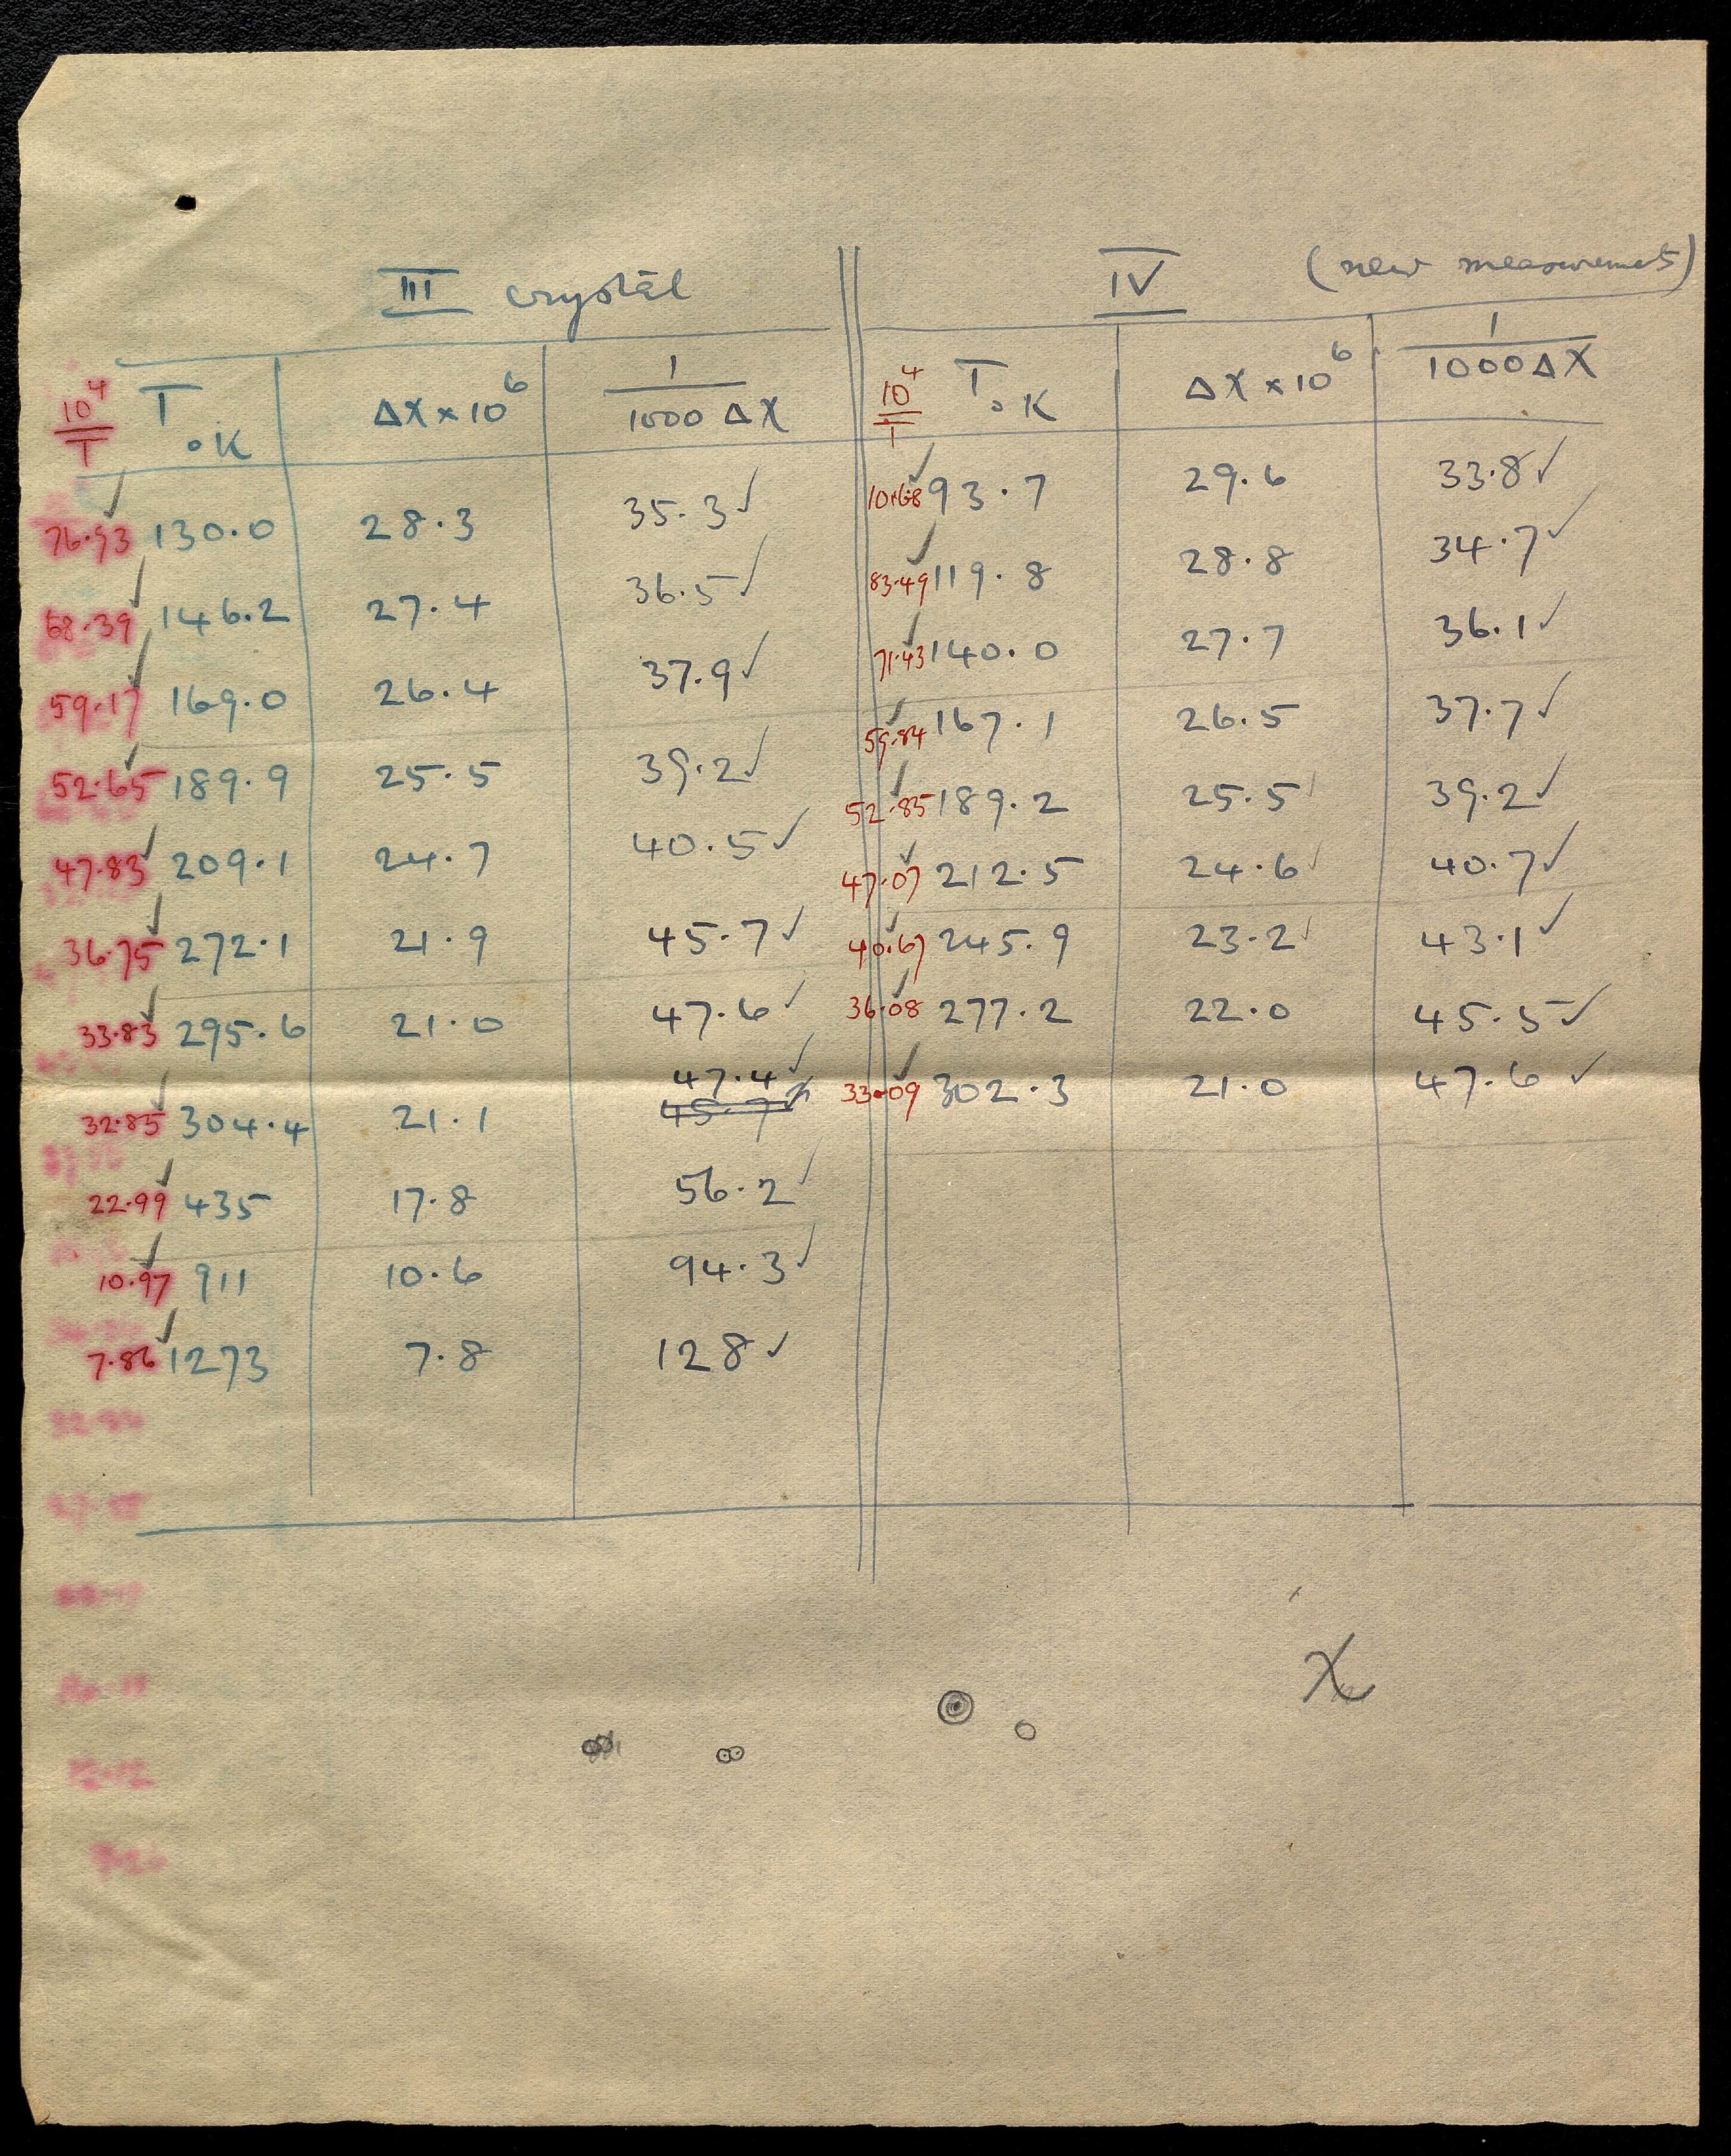 III crystal
10⁴/T T °K ΔX × 10⁶ 1/1000 ΔX
76.93 130.0 28.3 35.3 ✓
68.39 146.2 27.4 36.5 ✓
59.17 169.0 26.4 37.9 ✓
52.65 189.9 25.5 39.2 ✓
47.83 209.1 24.7 40.5 ✓
36.75 272.1 21.9 45.7 ✓
33.83 295.6 21.0 47.6 ✓
47.4 ✓
32.85 304.4 21.1 45.7
22.99 435 17.8 56.2 ✓
10.97 911 10.6 94.3 ✓
7.86 1273 7.8 128 ✓
IV (new measurements)
10⁴/T T °K ΔX × 10⁶ 1/1000 ΔX
93.7 29.6 33.8 ✓
83.49 119.8 28.8 34.7 ✓
71.43 140.0 27.7 36.1 ✓
59.84 167.1 26.5 37.7 ✓
52.85 189.2 25.5 39.2 ✓
47.07 212.5 24.6 40.7 ✓
40.67 245.9 23.2 43.1 ✓
36.08 277.2 22.0 45.5 ✓
33.09 302.3 21.0 47.6 ✓
X